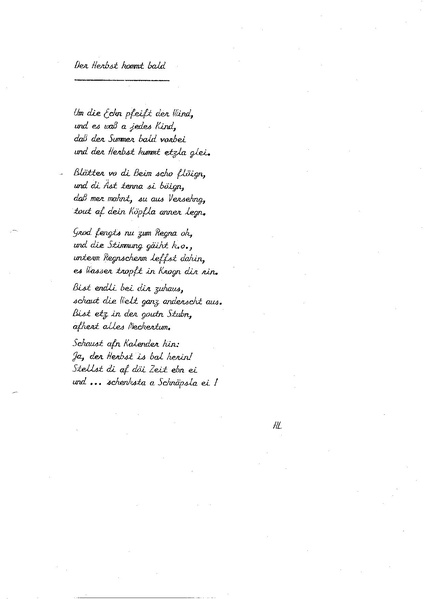 Der Herbst kommt bald
Um die Eckn pfeift der Wind,
und es waß a jedes Kind,
daß der Summer bald vorbei
und der Herbst kummt etzla glei.
Blätter vo di Beim scho fläign,
und di Äst tenna si bäign,
daß mer mahnt, su aus Versehng,
tout af dein Köpfla anner legn.
Grod fengts nu zum Regna oh,
und die Stimmung gäiht k.o.,
unterm Regnscherm leffst dahin,
es Wasser tropft in Krogn dir nin.
Bist endli bei dir zuhaus,
schaut die Welt ganz anderscht aus.
Bist etz in der goutn Stubn,
afhert alles Meckertum.
Schaust afn Kalender hin:
Ja, der Herbst is bal herin!
Stellst di af däi Zeit ebn ei
und ... schenksta a Schnäpsla ei !